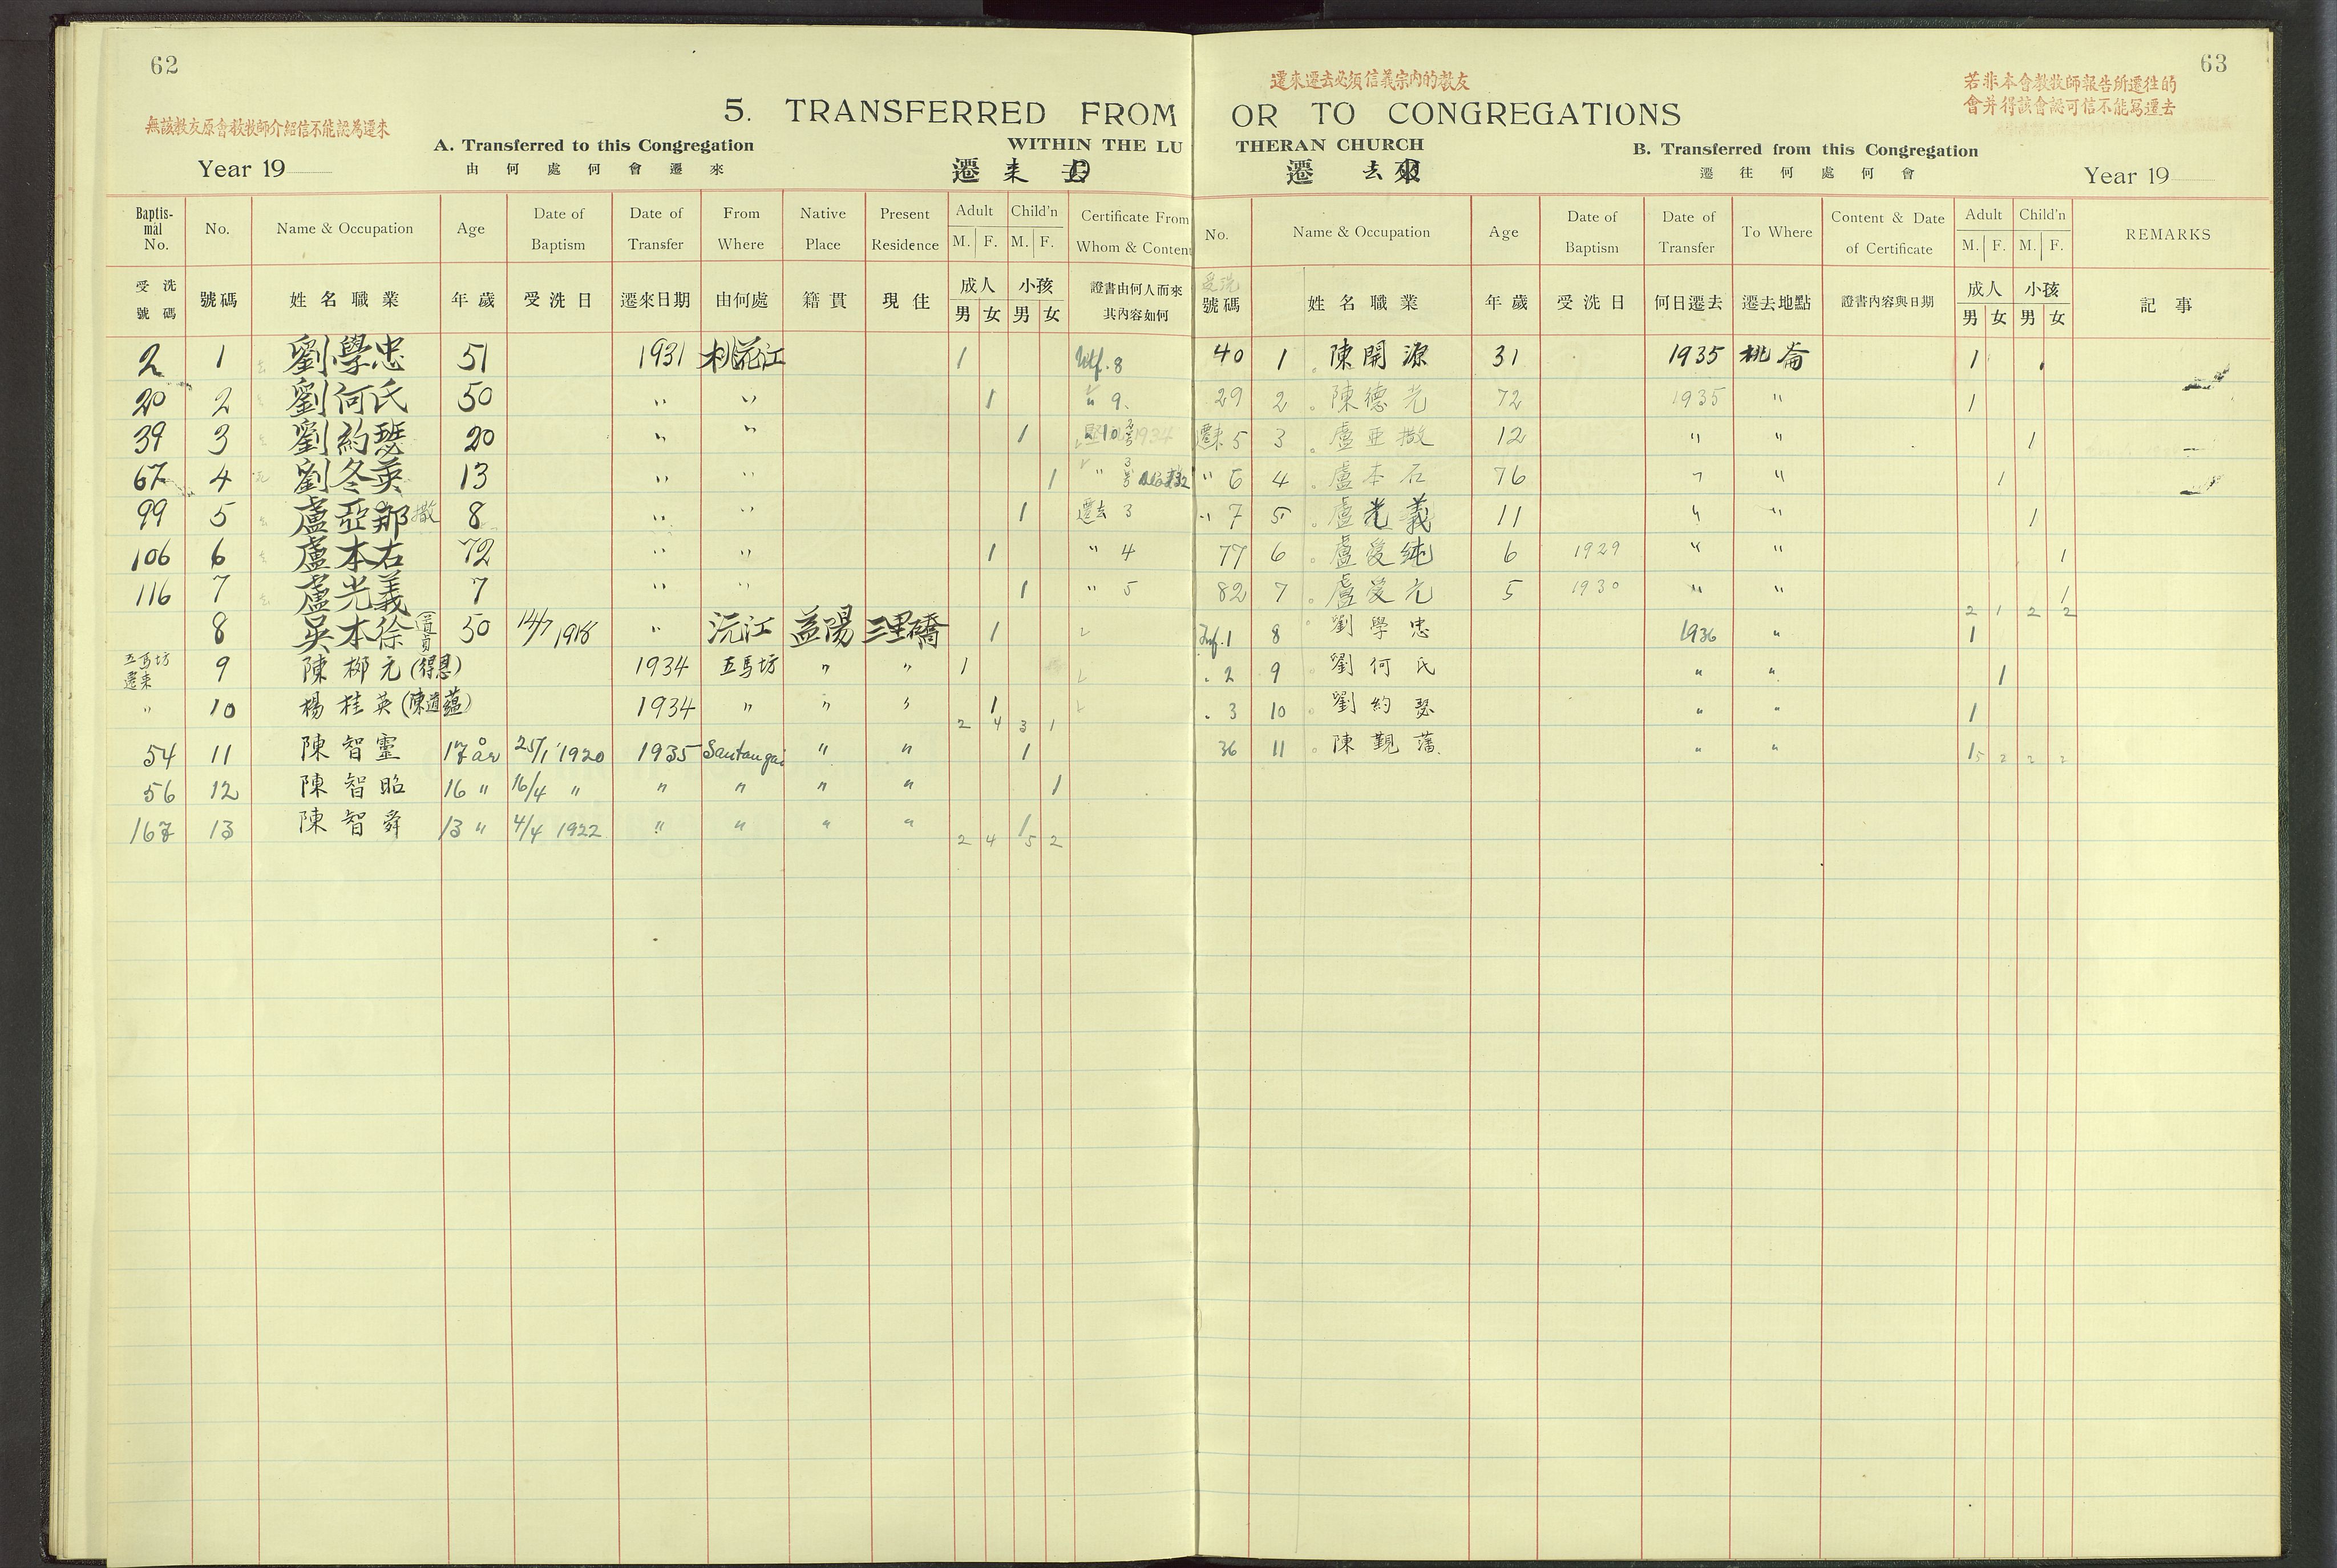 62
無該教友原會教牧師介紹信不能認為遷來
5. TRANSFERRED FROM
A. Transferred to this Congregation
WITHIN THE LU
Year 19
由何處何會遷來
遷来
Baptismal No. No. Name & Occupation Age Date of Baptism Date of Transfer From Where Native Place Present Residence Adult M. F. Child'n M. F. Certificate From Whom & Content
受洗號碼 號碼 姓名職業 年歲 受洗日 遷來日期 由何處 籍貫 現住 成人 男 女 小孩 男 女 證書由何人而來其內容如何
2 1 劉學忠 51 1931 桃花江 1 Utf. 8
20 2 劉何氏 50 " " 1 " 9.
39 3 劉約瑟 20 " " 1 10 1934
67 4 劉冬英 13 " " 1 "
99 5 盧亞撒 8 " " 1 遷去 3
106 6 盧本右 72 " " 1 " 4
116 7 盧光義 7 " " 1 " 5
8 吳本徐 (道貞) 50 14/7 1918 " 沅江 益陽 三里橋 1
五馬坊遷来 9 陳鄉元 (得恩) 1934 五馬坊 " " 1
" 10 楊桂英 (陳道蘊) 1934 " " " 1
2 4 3 1
54 11 陳智靈 17 år 25/1 1920 1935 Santangai " " 1
56 12 陳智昭 16 " 16/4 " " " " " 1
167 13 陳智舜 13 " 4/4 1922 " " " " 1
2 4 5 2
63
遷來遷去必須信義宗內的教友
若非本會教牧師報告所遷往的
會并得該會認可信不能寫遷去
OR TO CONGREGATIONS
THERAN CHURCH
B. Transferred from this Congregation
遷 去
遷往何處何會
Year 19
No. Name & Occupation Age Date of Baptism Date of Transfer To Where Content & Date of Certificate Adult M. F. Child'n M. F. REMARKS
受洗
號碼 姓名職業 年歲 受洗日 何日遷去 遷去地點 證書內容與日期 成人 男 女 小孩 男 女 記事
40 1 陳開源 31 1935 桃崙 1
29 2 陳德光 72 1935 " 1
遷来 5 3 盧亞撒 12 " " 1
" 6 4 盧本右 76 " " 1
" 7 5 盧光義 11 " " 1
77 6 盧愛純 6 1929 " " 1
82 7 盧愛元 5 1930 " " 1
2 1 2 2
Inf. 1 8 劉學忠 1936 " 1
" 2 9 劉何氏 " " 1
" 3 10 劉約瑟 " " 1
36 11 陳觀藩 " " 1
5 2 2 2